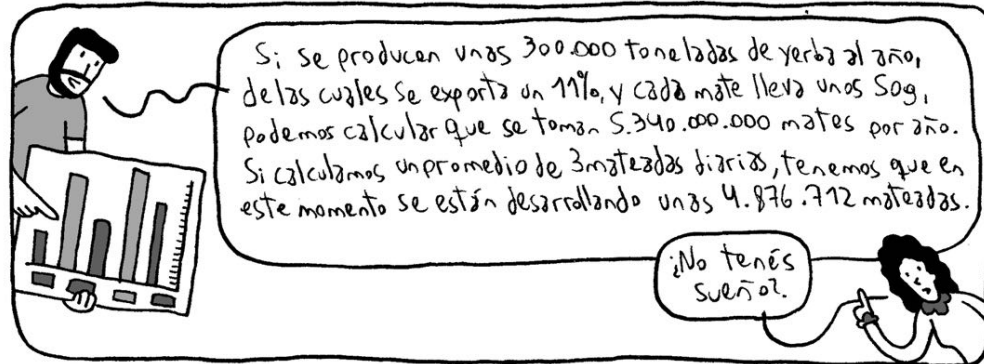 Si se producen unas 300.000 toneladas de yerba al año,
de las cuales se exporta un 11%, y cada mate lleva unos 50g,
podemos calcular que se toman 5.340.000.000 mates por año.
Si calculamos un promedio de 3 mateadas diarias, tenemos que en
este momento se están desarrollando unas 4.876.712 mateadas.
¿No tenés
sueño?.